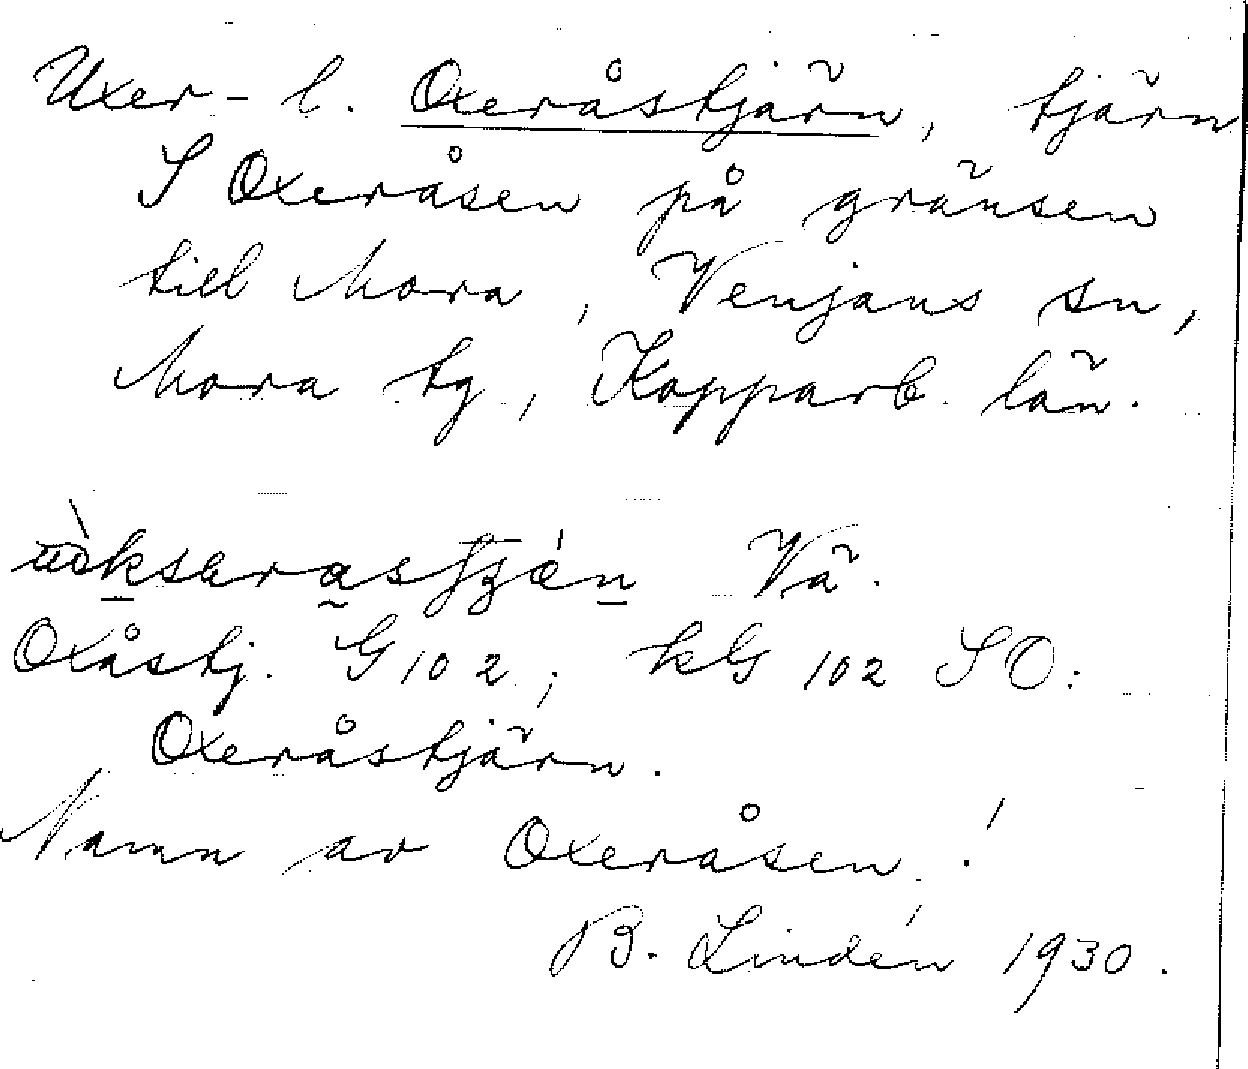 Uxer- l. Oxeråstjärn, tjärn
S Oxeråsen på gränsen
till Mora, Venjans sn,
Mora tg, Kopparb. län.
Vä.
Oxåstj. G 102; kG 102 SO:
Oxeråstjärn.
Namn av Oxeråsen!
B. Lindén 1930.